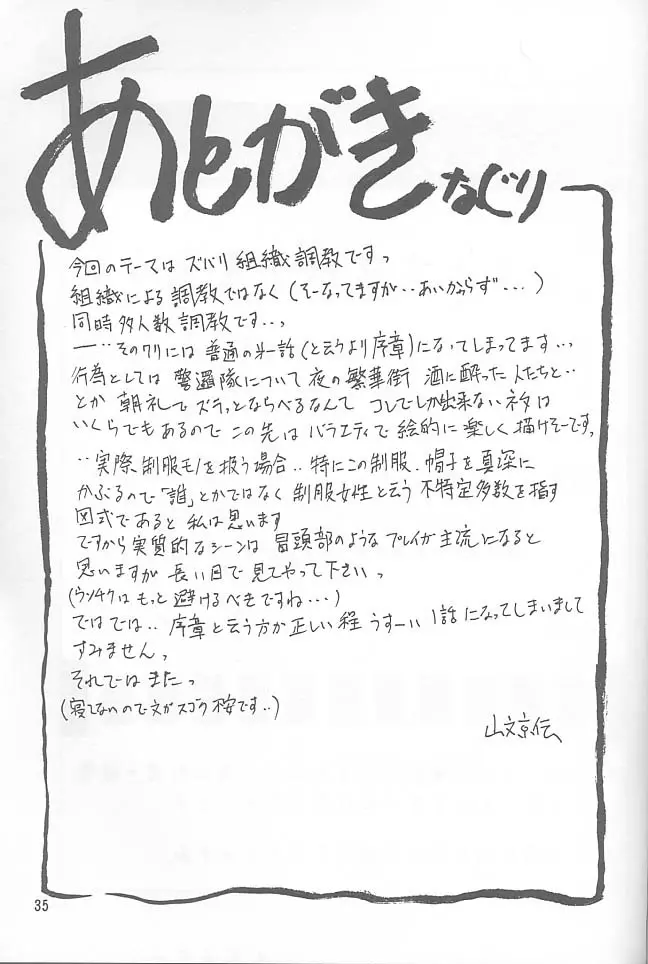 あとがき なぐり
今回のテーマは ズバリ 組織調教です。
組織による 調教ではなく (そーなってますが‥あいかわらず…)
同時多人数調教です‥。
一‥そのワリには 普通の第一話(と云うより序章)になってしまってます‥。
行為としては 警邏隊について 夜の繁華街 酒に酔った人たちと‥
とか 朝礼で ズラッとならべるなんて コレでしか出来ないネタは
いくらでもあるので この先は バラエティで 絵的に楽しく描けそーです。
‥実際、制服モノを扱う場合‥特にこの制服、帽子を真深に
かぶるので「誰」とかではなく 制服女性と云う 不特定多数を指す
図式であると 私は思います
ですから実質的なシーンは 冒頭部のような プレイが主流になると
思いますが 長い目で見てやって下さい。
(ウンチクはもっと 避けるべきですね…)
ではでは‥ 序章と云う方が正しい程 うすーい 1話になってしまいまして
すみません。
それではまた。
(寝てないので文がスゴク不安です‥)
山文京伝
35